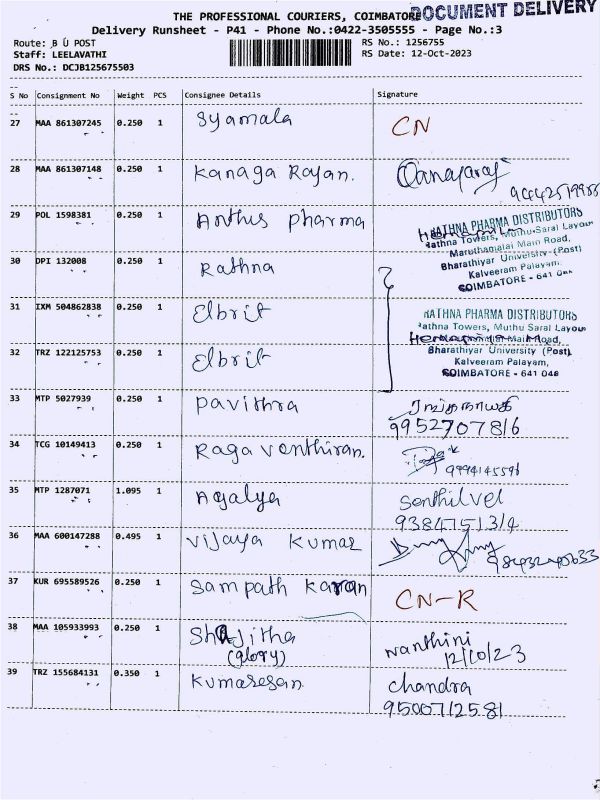 THE PROFESSIONAL COURIERS, COIMBATORE
DOCUMENT DELIVERY
Delivery Runsheet - P41 - Phone No.:0422-3505555 - Page No.:3
Route: B U POST
RS No.: 1256755
Staff: LEELAVATHI
RS Date: 12-Oct-2023
DRS No.: DCJB125675503
S No Consignment No Weight PCS Consignee Details Signature
27 MAA 861307245 0.250 1 Syamala CN
28 MAA 861307148 0.250 1 Kanaga Rajan.
29 POL 1598381 0.250 1 Anthus pharma
RATHNA PHARMA DISTRIBUTORS
Rathna Towers, Muthu Saral Layout
Maruthamalai Main Road,
Bharathiyar University (Post)
Kalveeram Palayam,
COIMBATORE - 641 046
30 DPI 132008 0.250 1 Rathna
31 IXM 504862838 0.250 1 Elbrit
RATHNA PHARMA DISTRIBUTORS
Rathna Towers, Muthu Saral Layout
Main Road,
Bharathiyar University (Post)
Kalveeram Palayam,
COIMBATORE - 641 046
32 TRZ 122125753 0.250 1 Elbrit
33 MTP 5027939 0.250 1 Pavithra ரங்கநாயகி
9952707816
34 TCG 10149413 0.250 1 Raga Venthiran.
35 MTP 1287071 1.095 1 Agalya Senthilvel
9384751314
36 MAA 600147288 0.495 1 Vijaya Kumar
37 KUR 695589526 0.250 1 Sampath Karan CN-R
38 MAA 105933993 0.250 1 Shajitha Nanthini
(glory) 12/10/23
39 TRZ 155684131 0.350 1 Kumaresan Chandra
9500712581